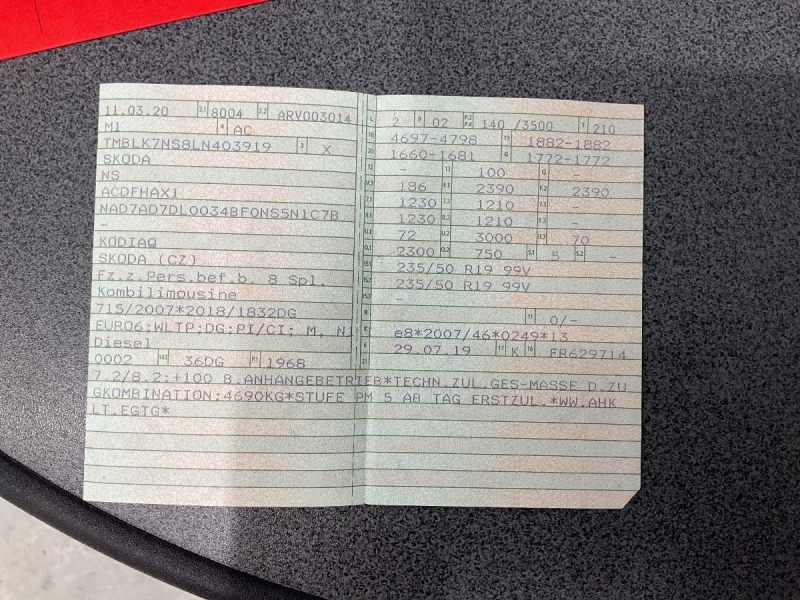 11.03.20 2.1 8004 2.2 ARV003014
M1 4 AC
TMBLK7NS8LN403919 3 X
SKODA
NS
ACDFHAX1
NAD7AD7DL0034BFONS5N1C7B
-
KODIAQ
SKODA (CZ)
Fz.z.Pers.bef.b. 8 Spl.
Kombilimousine
715/2007*2018/1832DG
EURO6;WLTP;DG;PI/CI; M, N1
Diesel
0002 14.1 36DG P.1 1968
L 2 9 02 P.2 P.4 140 /3500 T 210
18 4697-4798 19 1882-1882
20 1660-1681 G 1772-1772
12 - 13 100 Q -
V.7 186 F.1 2390 F.2 2390
7.1 1230 7.2 1210 7.3 -
8.1 1230 8.2 1210 8.3 -
U.1 72 U.2 3000 U.3 70
O.1 2300 O.2 750 S.1 5 S.2 -
15.1 235/50 R19 99V
15.2 235/50 R19 99V
15.3 -
R 11 0/-
K e8*2007/46*0249*13
6 29.07.19 17 K 16 FR629714
21
7.2/8.2:+100 B.ANHANGEBETRIEB*TECHN.ZUL.GES-MASSE D.ZU
GKOMBINATION:4690KG*STUFE PM 5 AB TAG ERSTZUL.*WW.AHK
LT.EGTG*